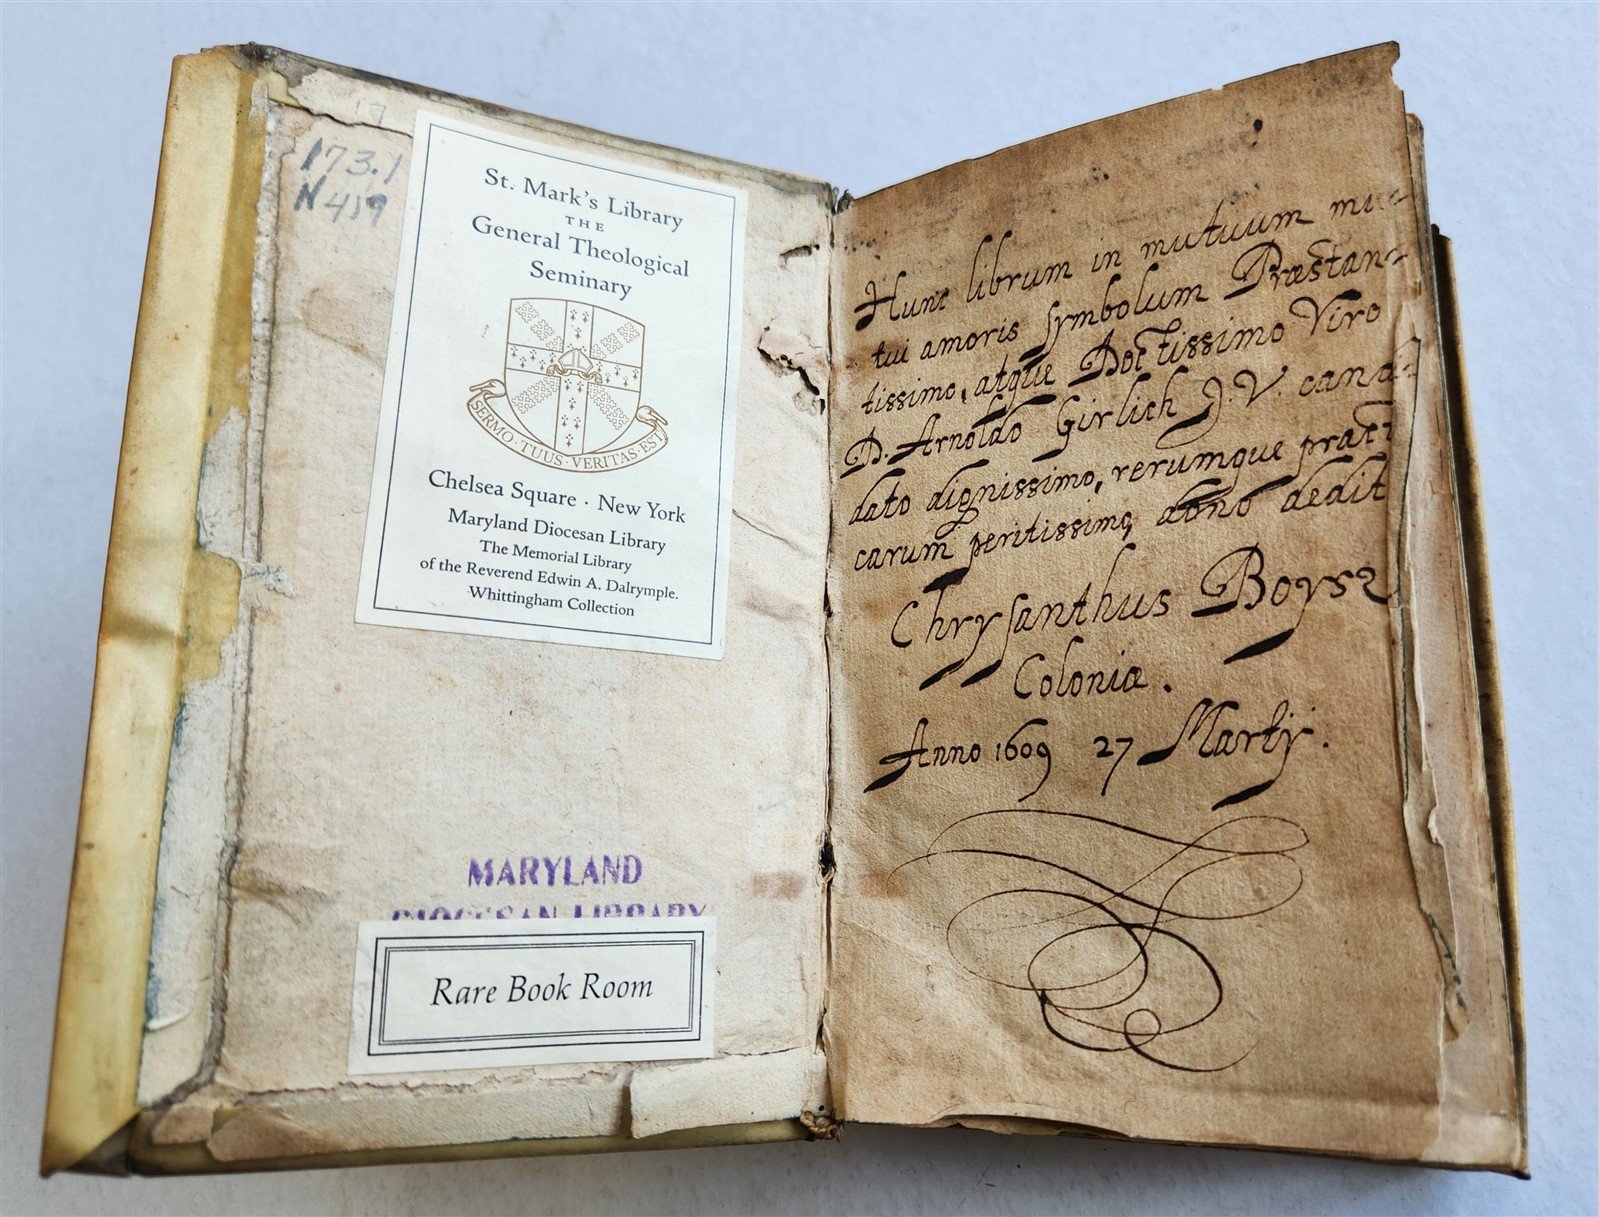 173.1
N419
St. Mark's Library
THE
General Theological
Seminary
SERMO · TUUS · VERITAS · EST
Chelsea Square · New York
Maryland Diocesan Library
The Memorial Library
of the Reverend Edwin A. Dalrymple.
Whittingham Collection
MARYLAND
DIOCESAN LIBRARY
Rare Book Room
Hunc librum in mutuum mu-
tui amoris symbolum Præstan-
tissimo, atque Doctissimo Viro
D. Arnoldo Girlich J. V. candi
dato dignissimo, rerumque practi
carum peritissimo, dono dedit
Chrysanthus Boysz
Coloniæ.
Anno 1609 27 Martij.